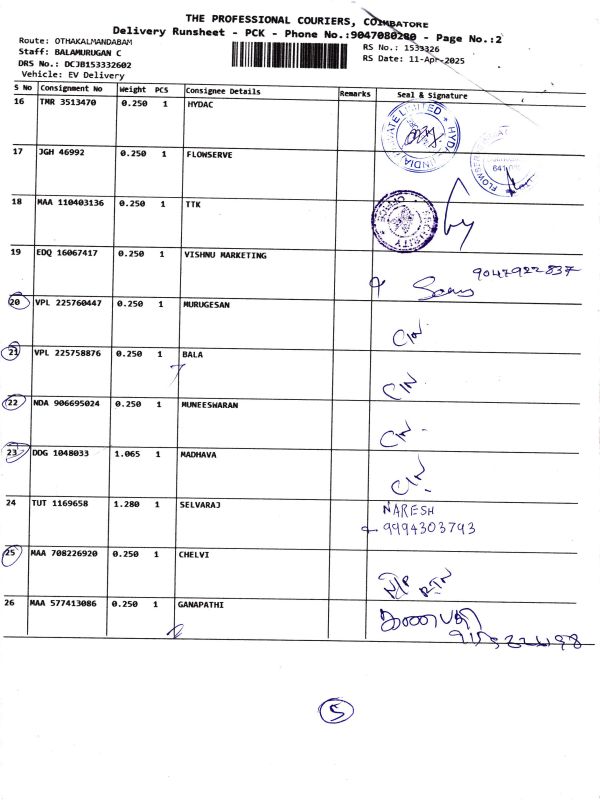 THE PROFESSIONAL COURIERS, COIMBATORE
Delivery Runsheet - PCK - Phone No.:9047080280 - Page No.:2
Route: OTHAKALMANDABAM
RS No.: 1533326
Staff: BALAMURUGAN C
RS Date: 11-Apr-2025
DRS No.: DCJB153332602
Vehicle: EV Delivery
S No Consignment No Weight PCS Consignee Details Remarks Seal & Signature
16 TMR 3513470 0.250 1 HYDAC
17 JGH 46992 0.250 1 FLOWSERVE
641
18 MAA 110403136 0.250 1 TTK
SECURITY OFFICE
19 EDQ 16067417 0.250 1 VISHNU MARKETING
9047922837
20 VPL 225760447 0.250 1 MURUGESAN
CIN
21 VPL 225758876 0.250 1 BALA
CIN
22 NDA 906695024 0.250 1 MUNEESWARAN
CIN
23 DDG 1048033 1.065 1 MADHAVA
CIN
24 TUT 1169658 1.280 1 SELVARAJ
NARESH
9994303793
25 MAA 708226920 0.250 1 CHELVI
RTN
26 MAA 577413086 0.250 1 GANAPATHI
5